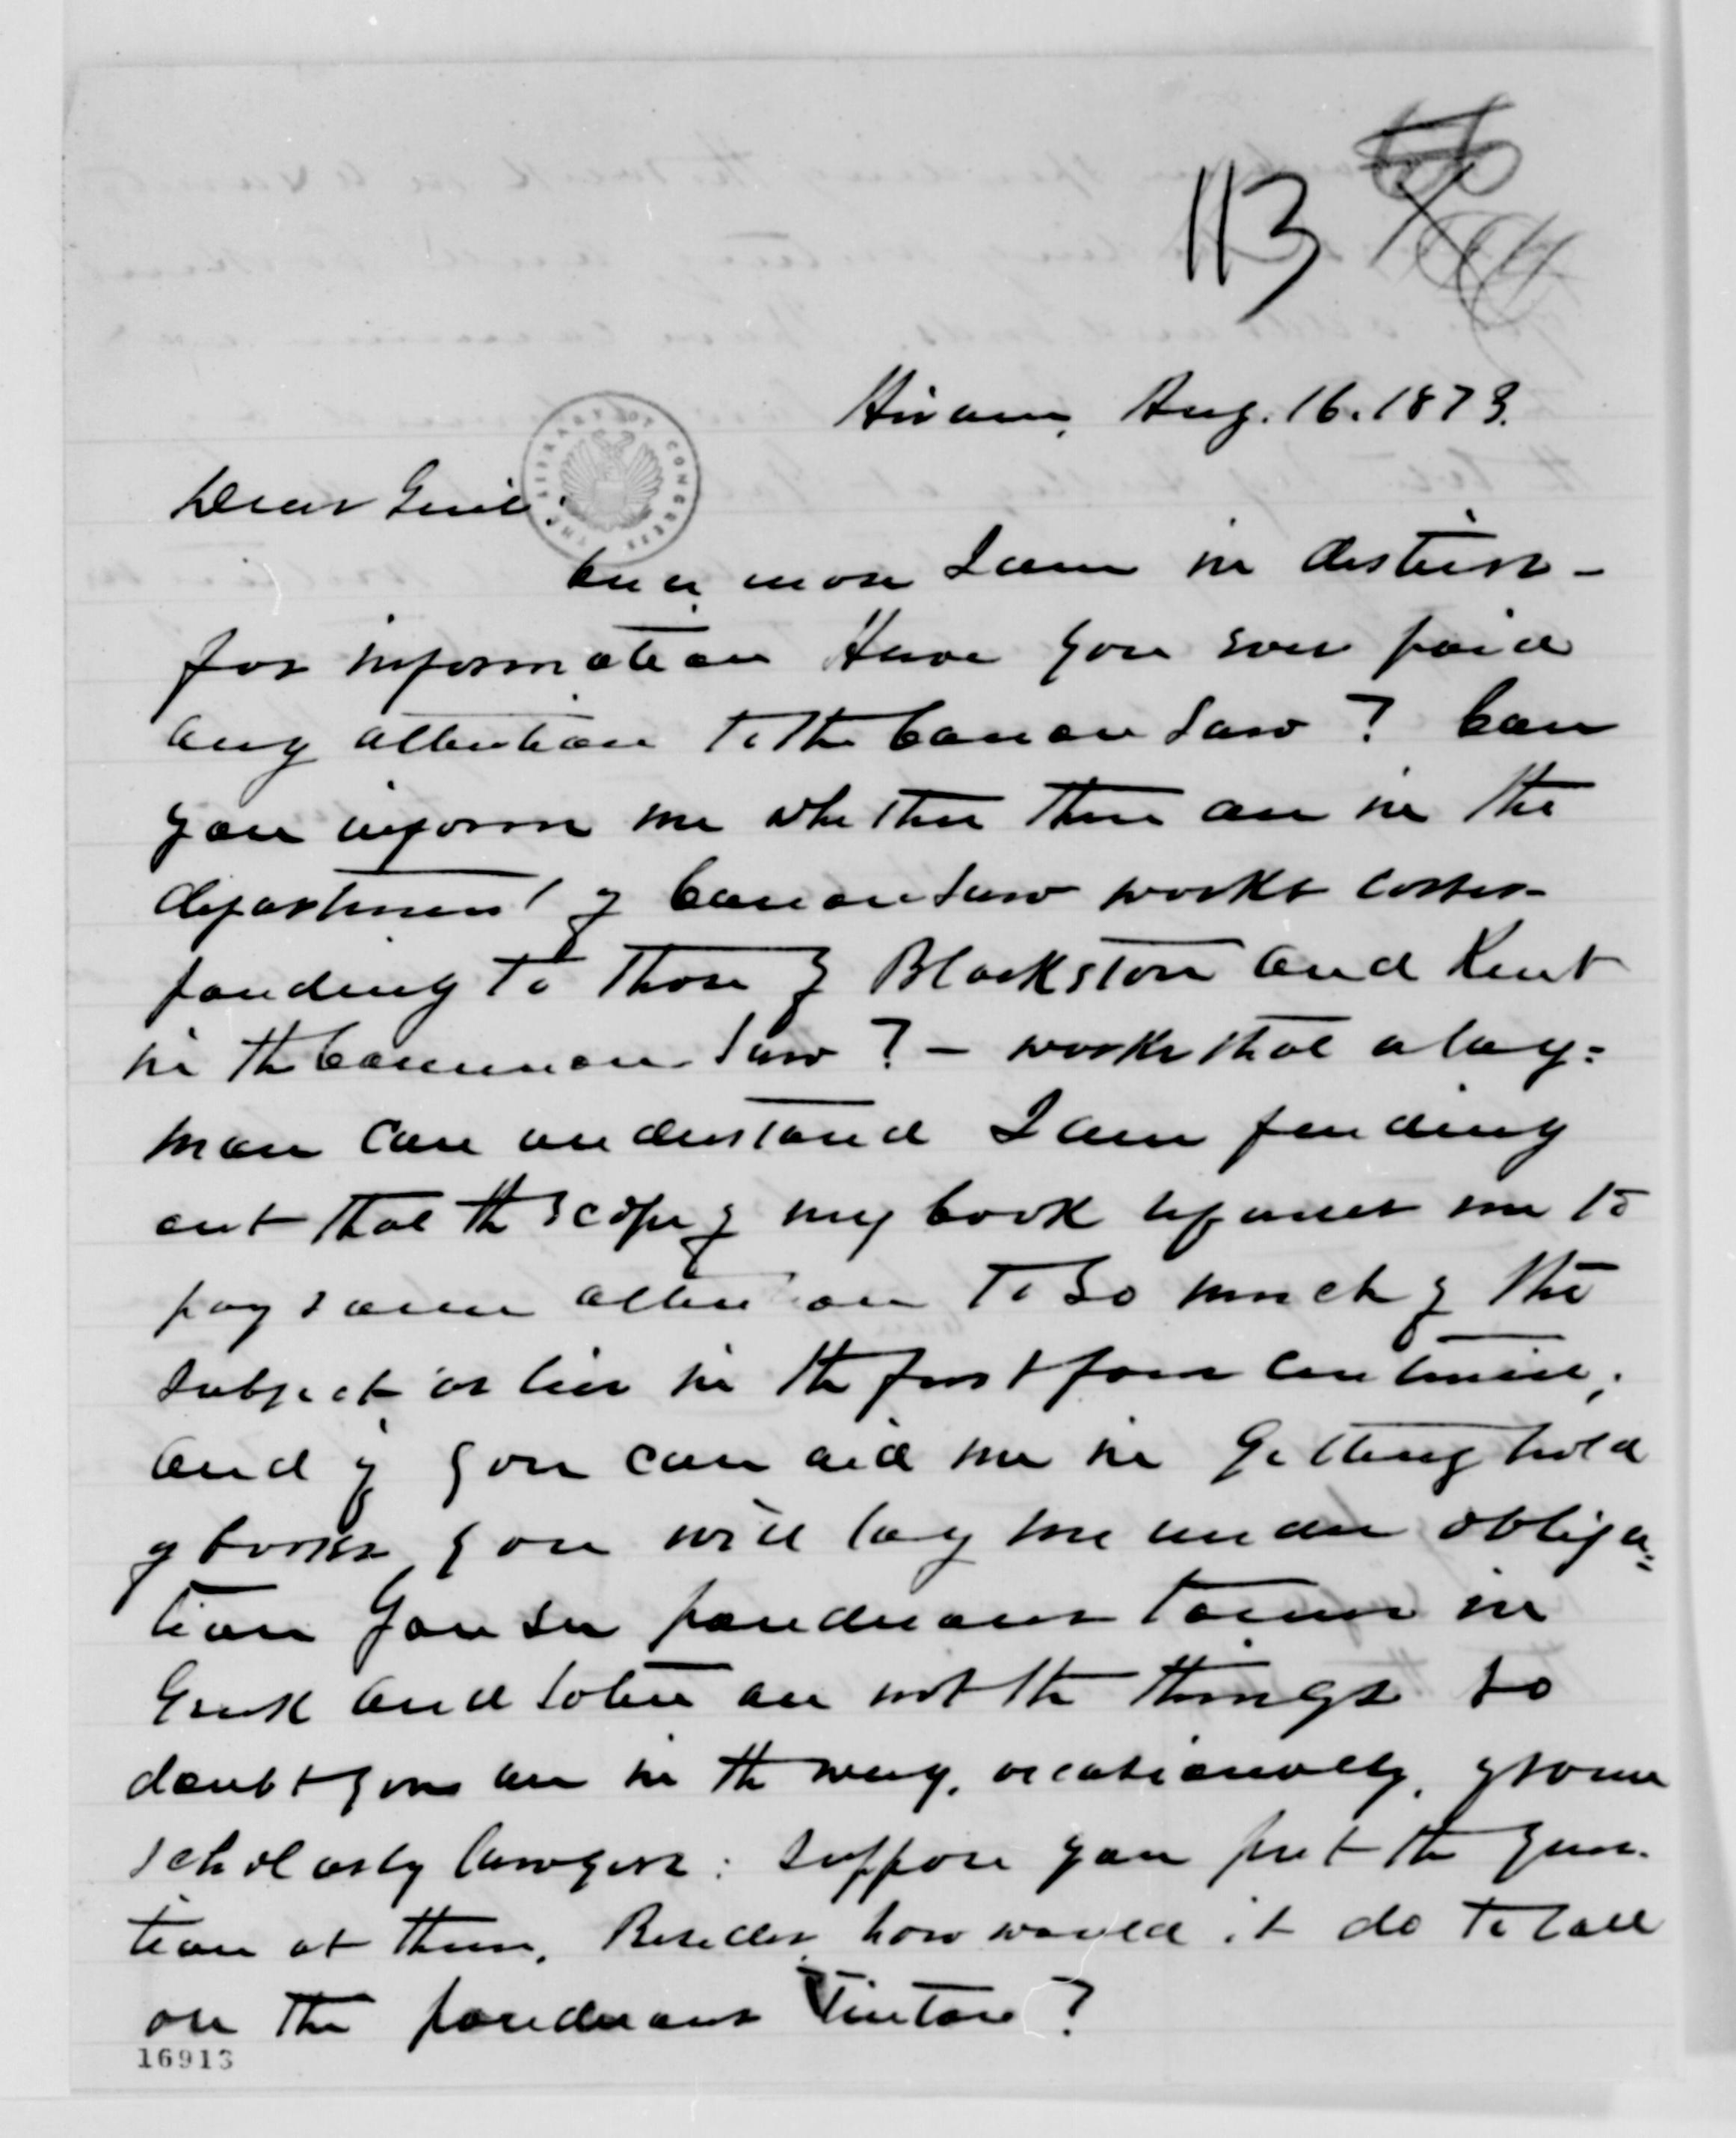 113
Hiram, Aug. 16. 1873.
Dear Genl.
THE LIBRARY OF CONGRESS
Once more I am in distress
for information Have you ever paid
any attention to the Canon Law? Can
you inform me whether there are in the
department of Canon Law works corres-
ponding to those of Blackstone and Kent
in the Common Law? - works that a lay=
man can understand I am finding
out that the scope of my book requires me to
pay some attention to so much of the
subject as lies in the first four centuries;
and if you can aid me in getting hold
of books you will lay me under obliga=
tion You see ponderous tomes in
Greek and Latin are not the things No
doubt you are in the way, occasionally, of some
scholarly lawyers: suppose you put the ques-
tion at them. Besides how would it do to call
on the ponderous ?
16913